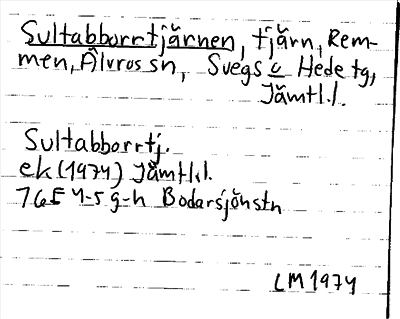 Sultabborrtjärnen, tjärn, Rem-
men, Älvros sn, Svegs o Hede tg,
Jämtl.l.
Sultabborrtj.
ek (1974) Jämtl.l.
16E 4-5 g-h Bodarsjön stn
LM 1974